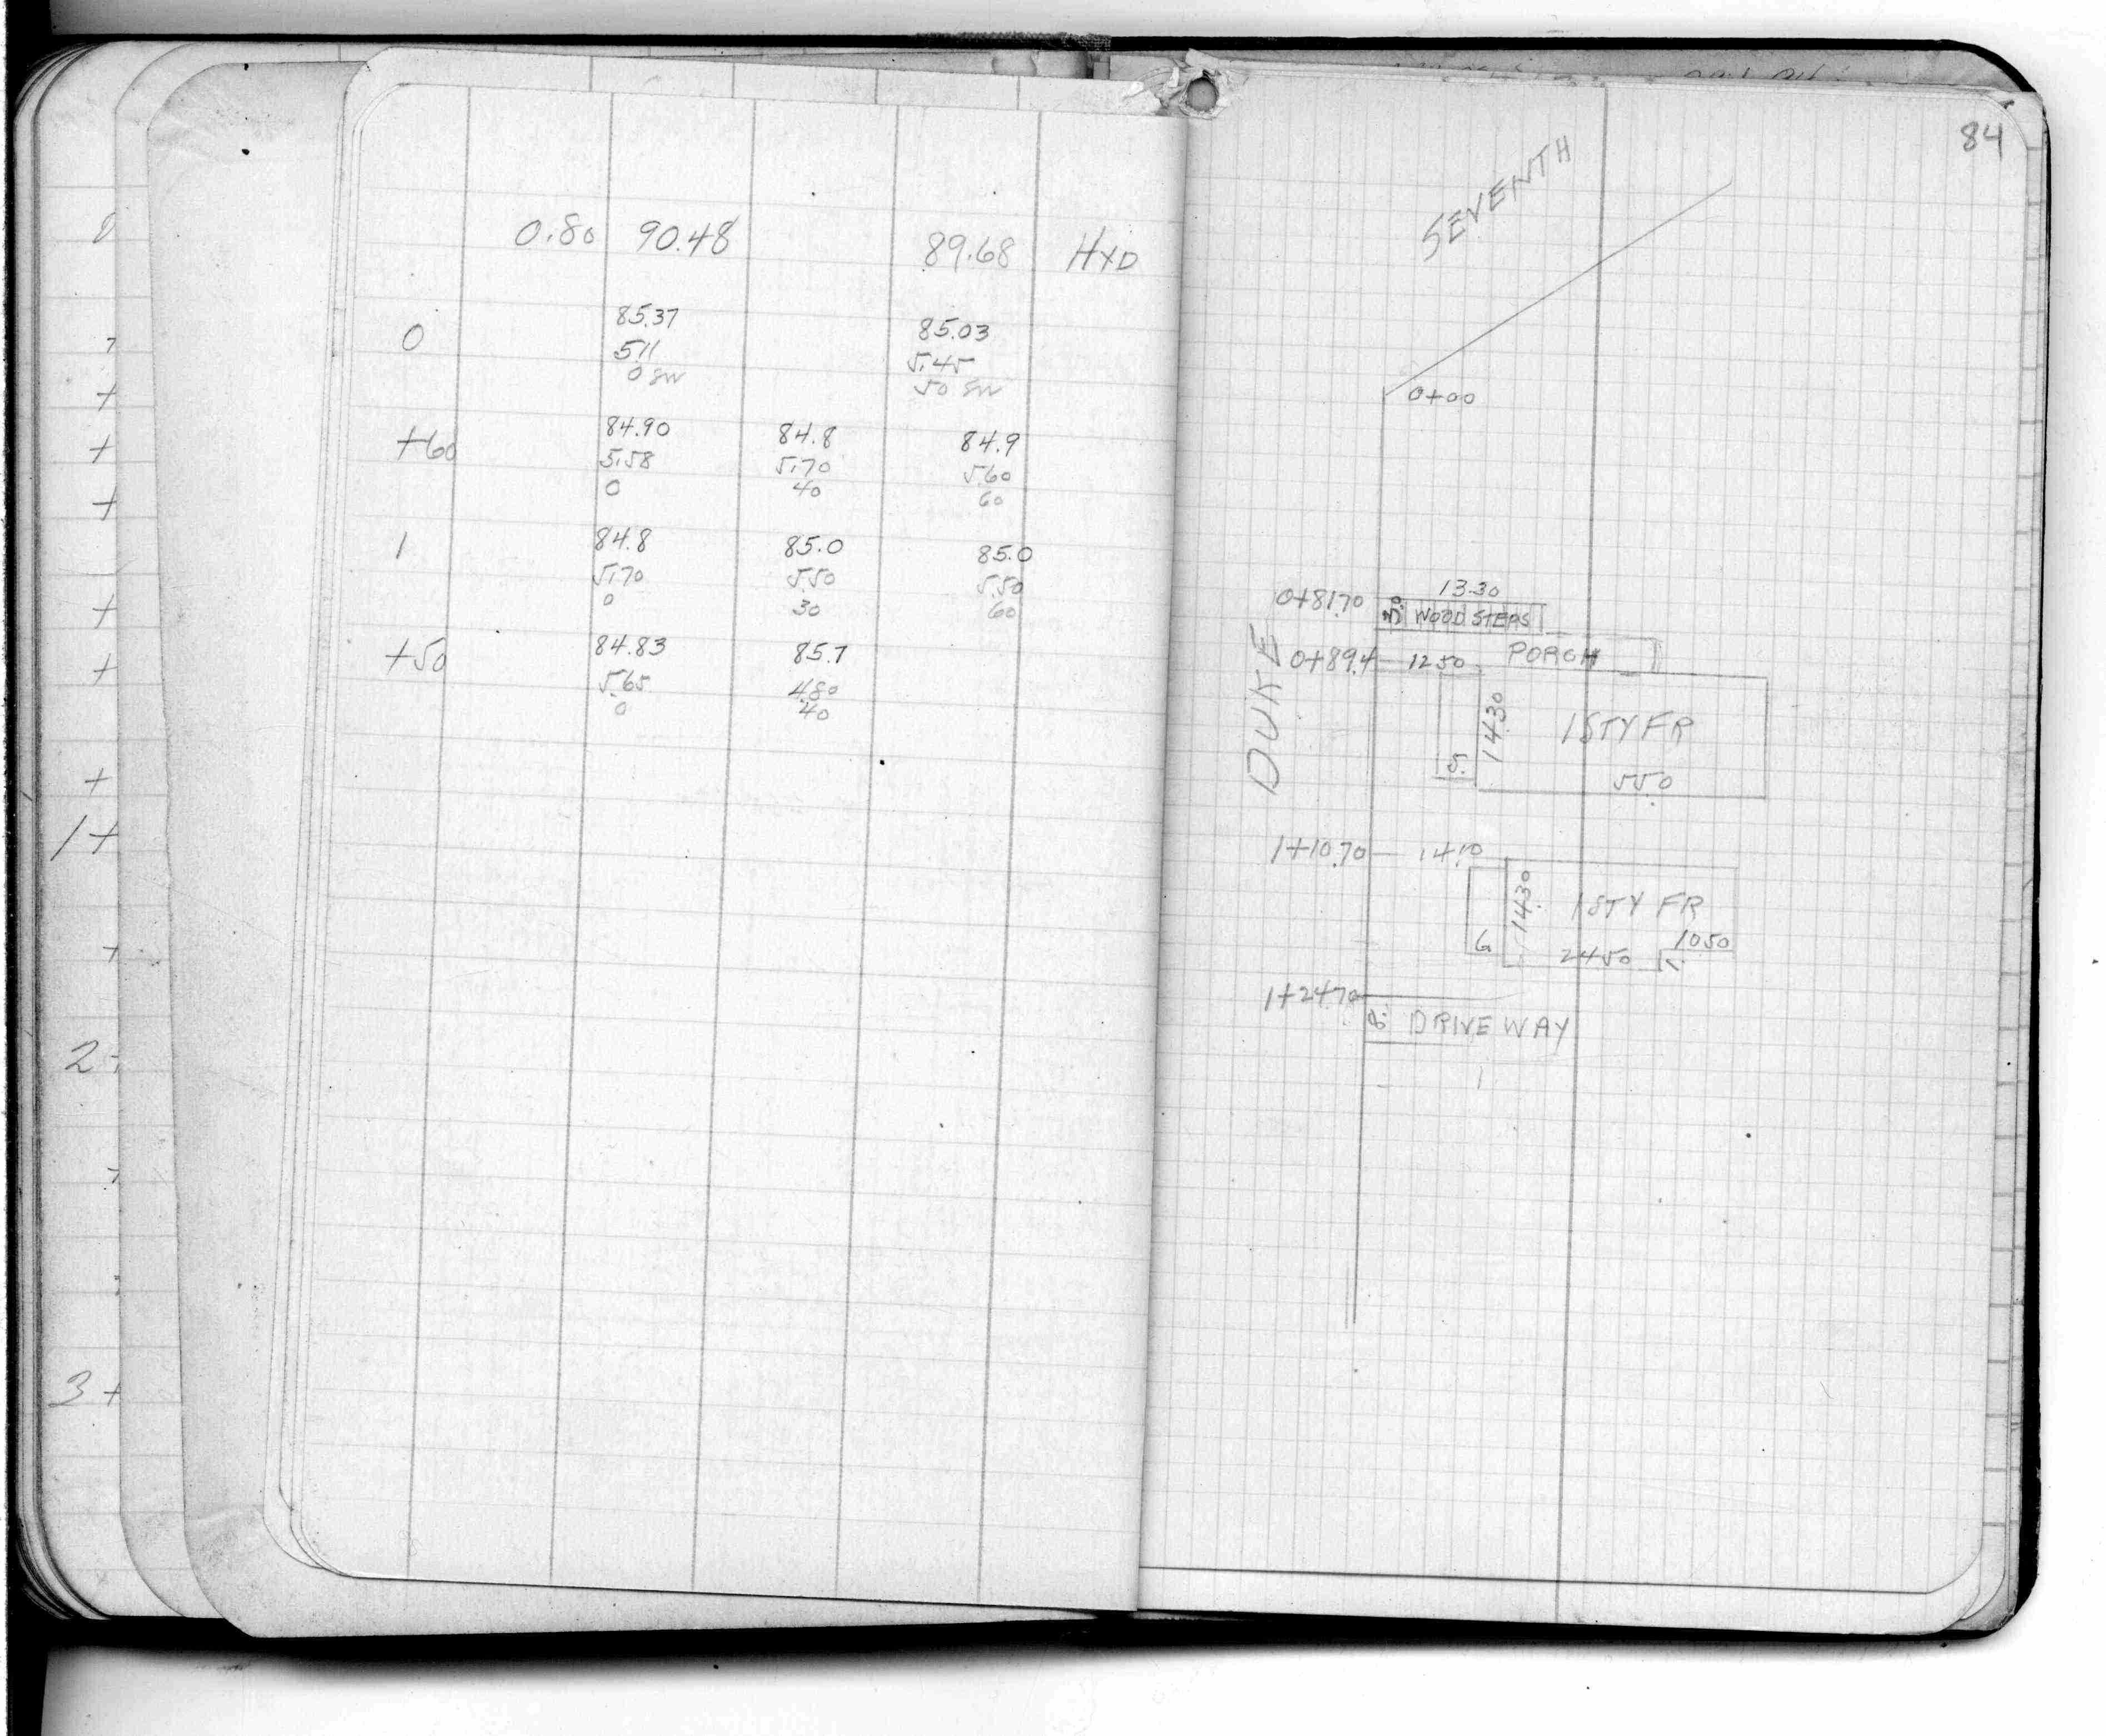 0.80 90.48 89.68 HYD
0 85.37 85.03
5.11 5.45
0 SW 50 SW
+60 84.90 84.8 84.9
5.58 5.70 5.60
0 40 60
1 84.8 85.0 85.0
5.70 5.50 5.50
0 30 60
+50 84.83 85.7
5.65 4.80
0 40
+
+
+
+
+
+
1+
2
3+
84
SEVENTH
0+00
DUKE
13.30
0+81.70 WOOD STEPS
0+89.4 12.50 PORCH
14.30 1 STY FR
5. 55.0
1+10.70 14.10
14.30 1 STY FR
6 24.50 10.50
1+24.70
8. DRIVE WAY